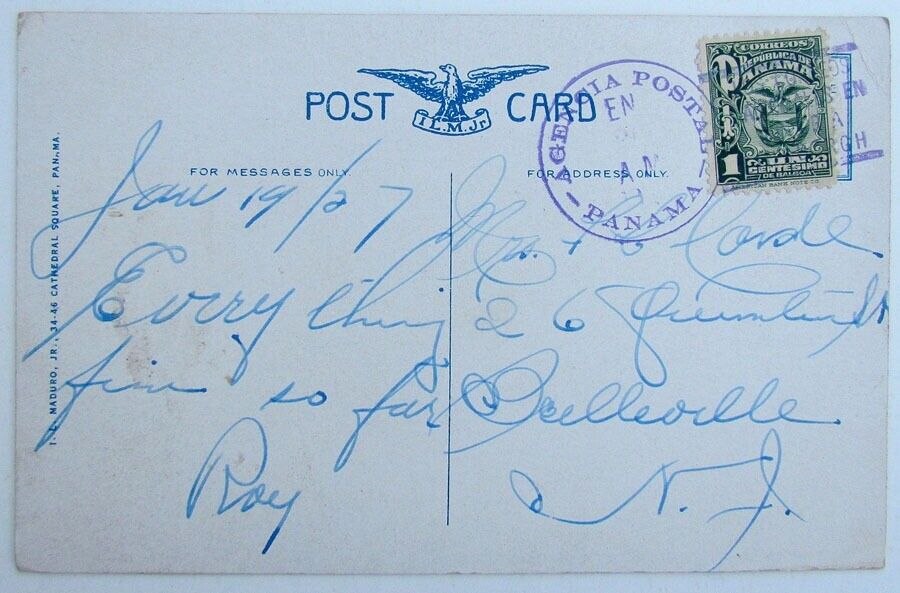 POST CARD
I.L.M.Jr.
FOR MESSAGES ONLY.
FOR ADDRESS ONLY.
I. L. MADURO, JR., 34-46 CATHEDRAL SQUARE, PANAMA.
Jan 19/27
Every thing
fine so far
Roy
Mrs.
26 St
Belleville
N. J.
AGENCIA POSTAL
EN
PANAMA
CORREOS
REPÚBLICA DE
PANAMA
1 UN
CENTESIMO
DE BALBOA
AMERICAN BANK NOTE CO
EN